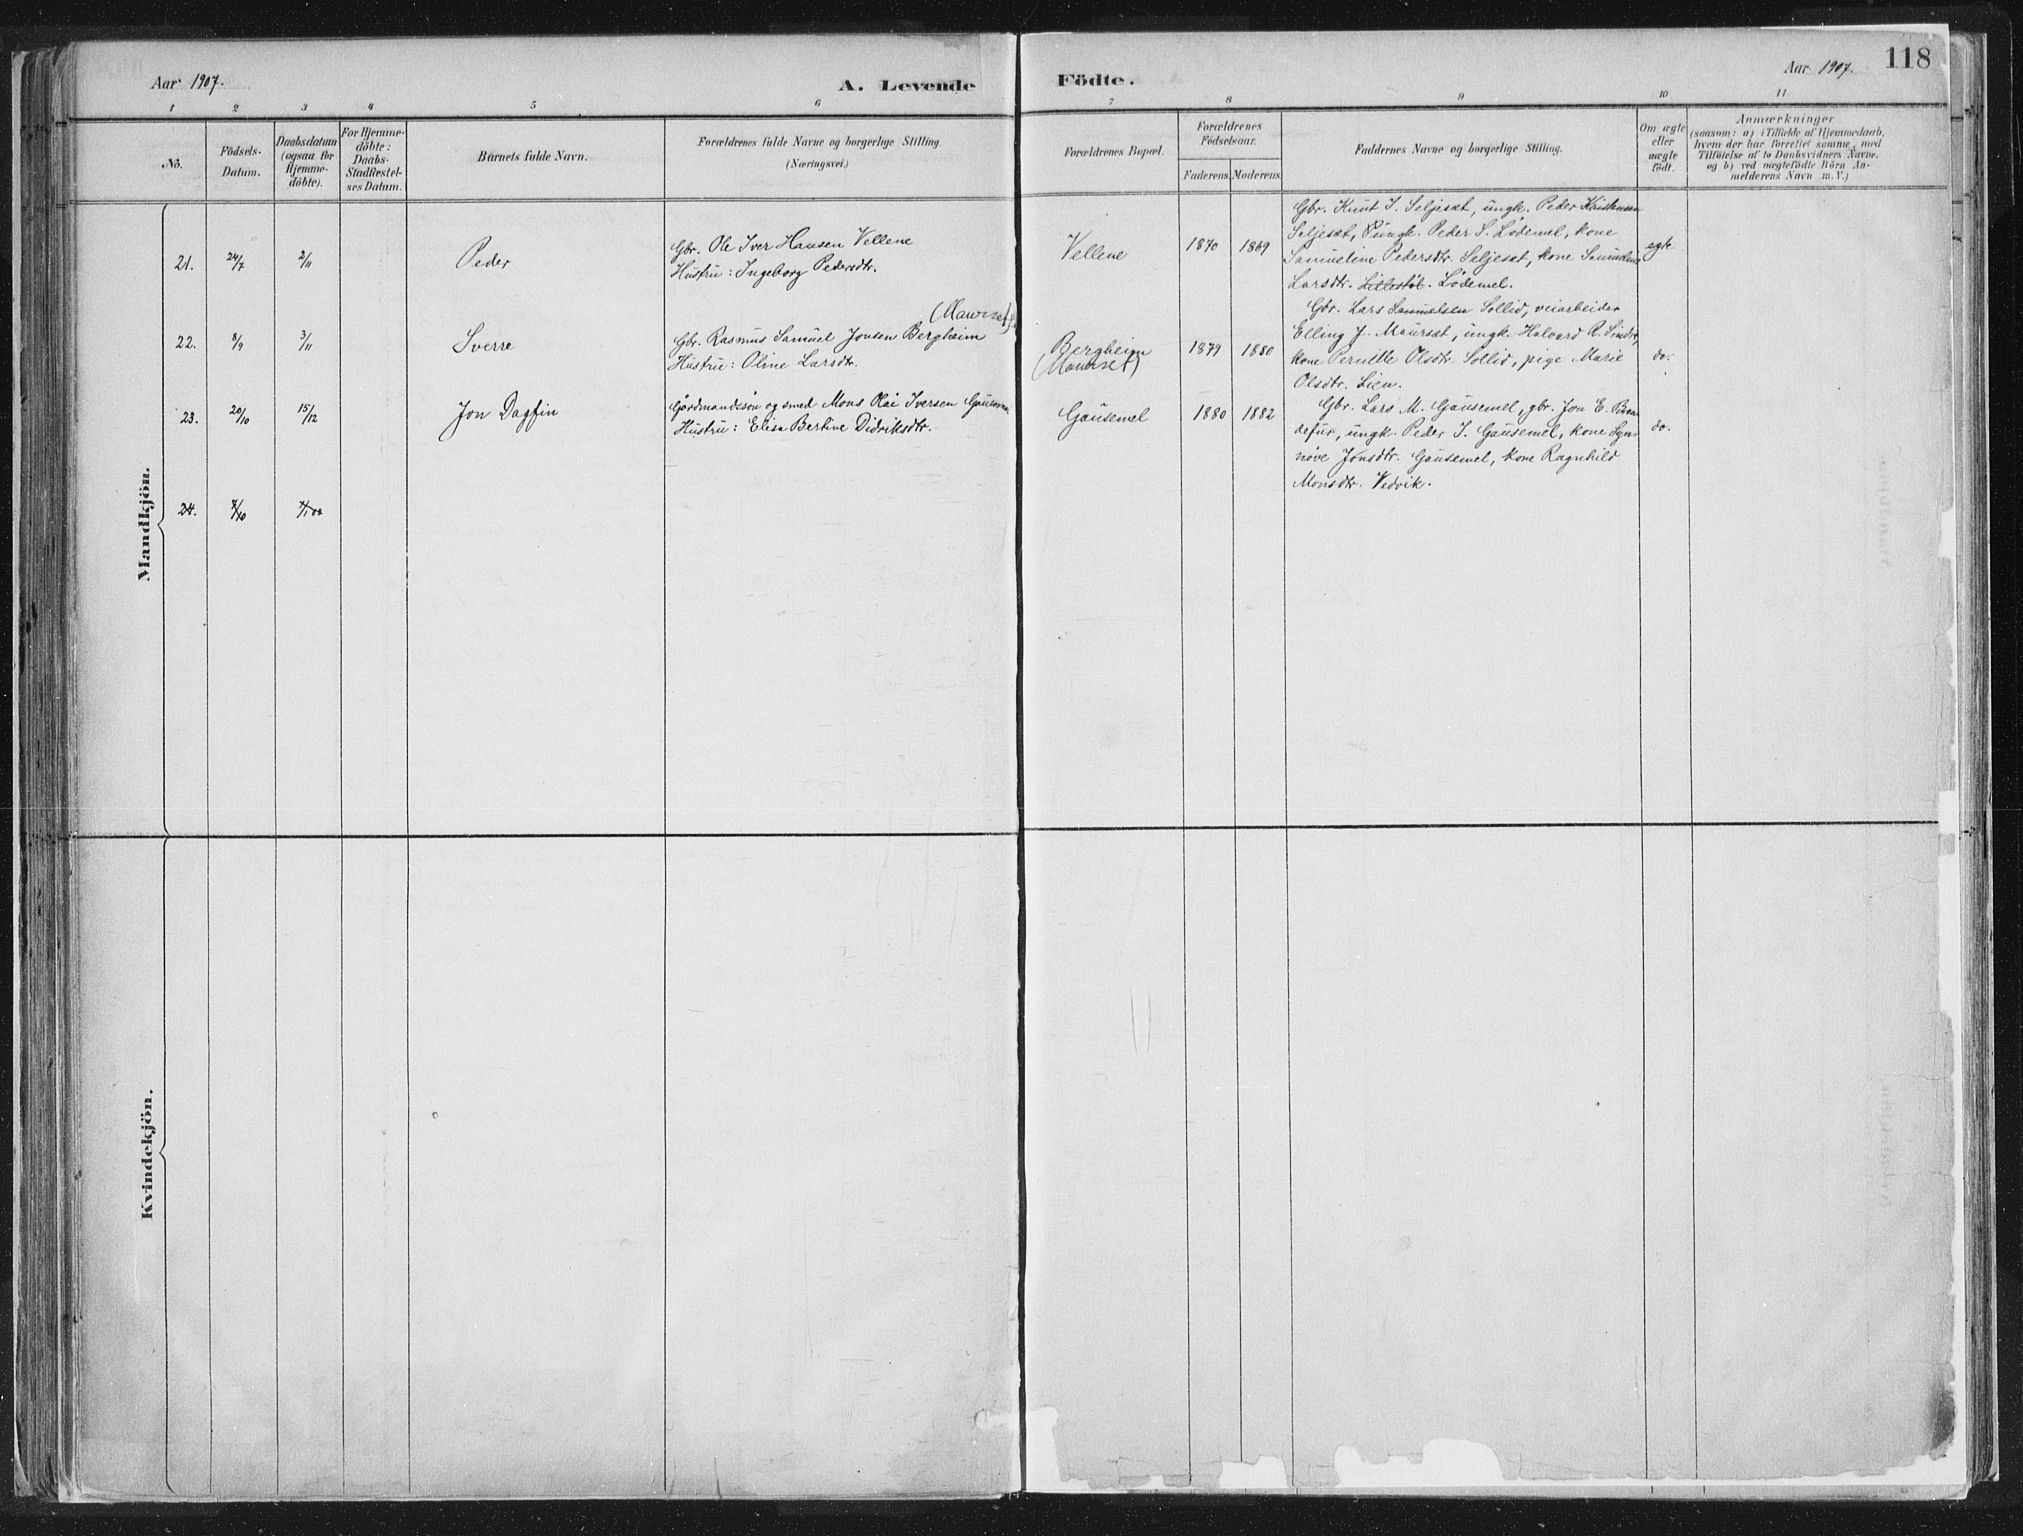 Aar 1907.
A. Levende
Födte.
Aar 1907.
118
1 2 3 4 5 6 7 8 9 10 11
No.
Födsels-
Datum.
Daabsdatum
(ogsaa for
Hjemme-
döbte).
For Hjemme-
döbte:
Daabs-
Stadfæstel-
ses Datum.
Barnets fulde Navn.
Forældrenes fulde Navne og borgerlige Stilling.
(Næringsvei.)
Forældrenes Bopæl.
Forældrenes
Födselsaar.
Faderens. Moderens.
Faddernes Navne og borgerlige Stilling.
Om ægte
eller
uægte
födt.
Anmærkninger
(saasom: a) i Tilfælde af Hjemmedaab,
hvem der har forrettet samme, med
Tilföielse af to Daabsvidners Navne,
og b) ved uægtefödte Börn An-
melderens Navn m. V.)
Mandkjön.
21. 24/7 2/11 Peder
Gbr. Ole Iver Hansen Vellene
Hustru: Ingeborg Pedersdtr.
Vellene 1870 1869
Gbr. Knut I. Seljeset, ungk. Peder Kristensen
Seljeset, ungk. Peder S. Lødemel, kone
Samueline Pedersdtr. Seljeset, kone
Larsdtr. Lillestøl. Lødemel.
egte
22. 8/9 3/11 Sverre
(Maurset)
Gbr. Rasmus Samuel Jonsen Bergheim
Hustru: Oline Larsdtr.
Bergheim
(Maurset)
1879 1880
Gbr. Lars Samuelsen Sollid, veiarbeider
Elling J. Maurset, ungk. Halvard R.
kone Pernille Olsdtr. Sollid, pige Marie
Olsdtr. Lien.
do.
23. 20/10 15/12 Jon Dagfin
Gårdmandssøn og smed Mons Olai Iversen Gausemel
Hustru: Elisa Bertine Didriksdtr.
Gausemel 1880 1882
Gbr. Lars M. Gausemel, gbr. Jon E.
ungk. Peder I. Gausemel, kone Syn-
nøve Jonsdtr. Gausemel, kone Ragnhild
Monsdtr. Vedvik.
do.
24.
Kvindekjön.